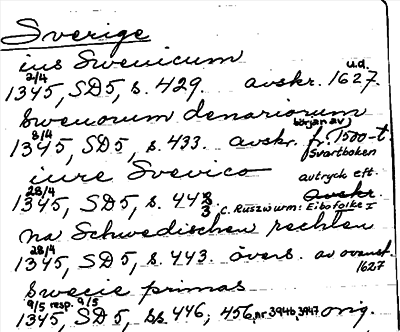 Sverige
ius Swenicum
2/4 u.d.
1345, SD5, s. 429. avskr. 1627.
Swenorum denariorum
8/4 början av
1345, SD5, s. 433. avskr. fr. 1500-t
Svartboken
iure Svevico avtryck eft.
28/4 avskr.
1345, SD5, s. 443 C. Russwurm: Eibofolke I
na Schwedischen rechten
28/4
1345, SD5, s. 443. övers. av ovanst.
1627
Swecie primas
9/5 resp. 9/5
1345, SD5, ss 446, 456, nr 3946, 3947 orig.